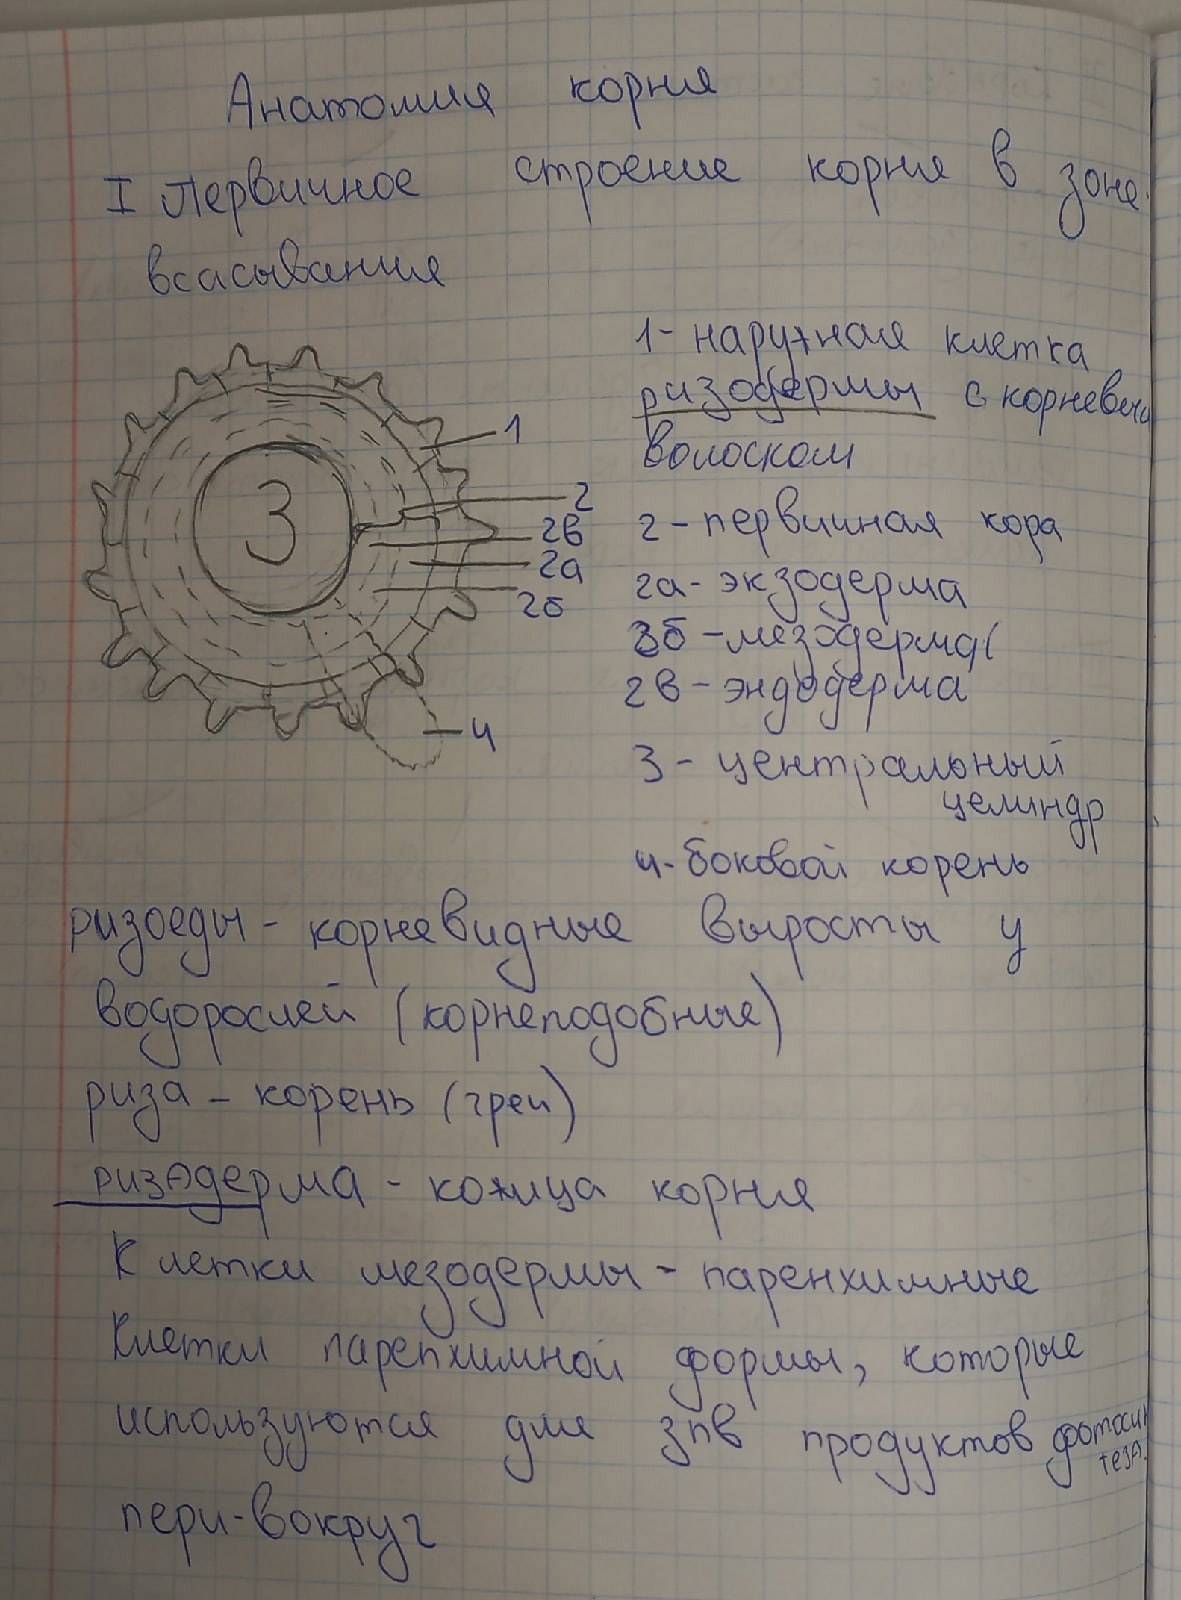 Анатомия корня
I Первичное строение корня в зоне
всасывания
1- наружная клетка
ризодермы с корневым
волоском
1
2
2в
2а
2б
3
4
2 - первичная кора
2а - экзодерма
3б - мезодерма(
2в - эндодерма
3 - центральный
целиндр
4 - боковой корень
ризоеды - корневидные выросты у
водорослей (корнеподобные)
риза - корень (греч)
ризодерма - кожица корня
Клетки мезодермы - паренхимные
Клетки паренхимной формы, которые
используются для зпв продуктов фотосин
теза.
пери - вокруг